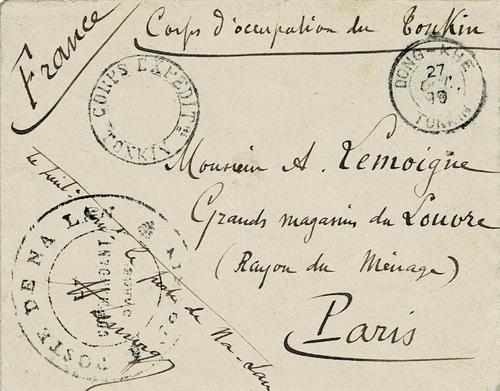 France
Corps d'occupation du Tonkin
CORPS EXPEDIT
TONKIN
DONG-KHE
27
TONKIN
Monsieur A. Lemoigne
Grands magasins du Louvre
(Rayon du Ménage)
Paris
POSTE DE NA LAN
le poste de Na-Lan